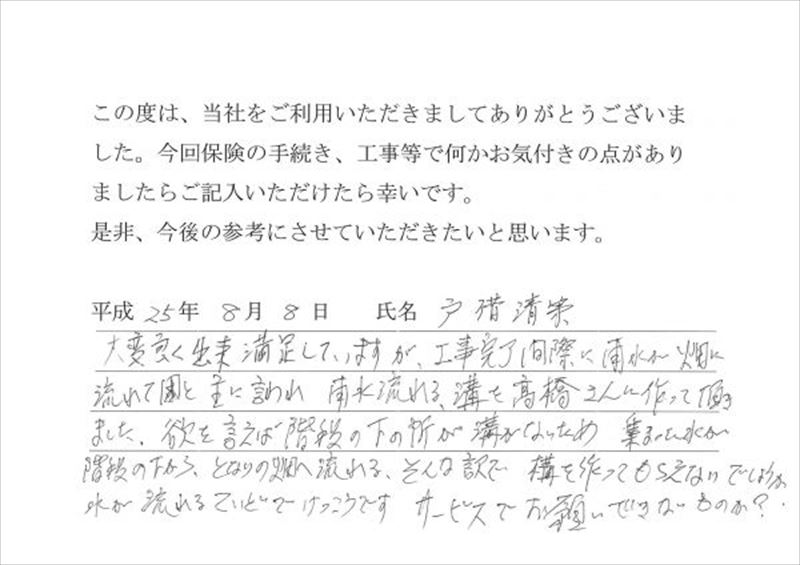 この度は、当社をご利用いただきましてありがとうございま
した。今回保険の手続き、工事等で何かお気付きの点があり
ましたらご記入いただけたら幸いです。
是非、今後の参考にさせていただきたいと思います。
平成 25年 8月 8日 氏名 戸 清
大変良く出来満足していますが、工事完了間際に雨水が畑に
流れて困ると主に言われ 雨水流れる、溝を高橋さんに作って頂き
ました、欲を言えば階段の下の所が溝がないため 集まった水が
階段の下から、となりの畑へ流れる、そんな訳で 構を作ってもらえないでしょうか
水が流れるていどでけっこうです サービスでお願いできないものか?